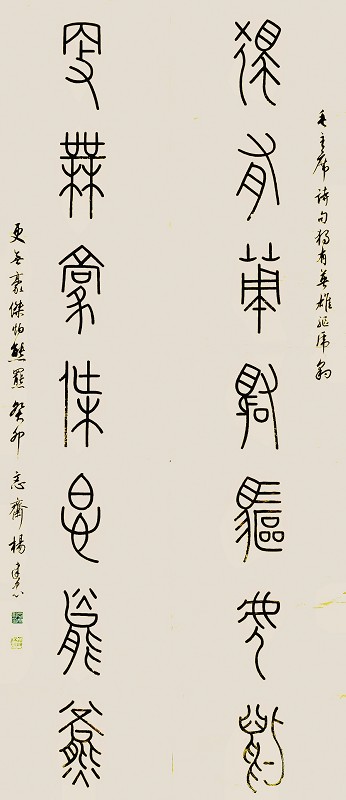 毛主席诗句独有英雄驱虎豹
獨有英雄驅虎豹
更無豪傑怕熊羆
更无豪傑怕熊羆 癸卯 齋楊